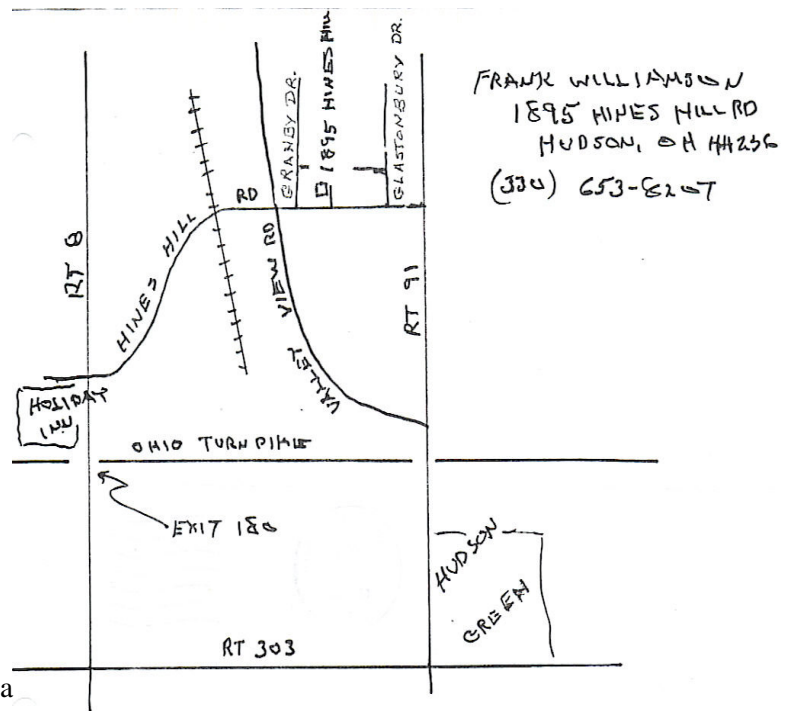 FRANK WILLIAMSON
1895 HINES HILL RD
HUDSON, OH 44236
(330) 653-8207
GRANBY DR.
1895 HINES HILL
GLASTONBURY DR.
HINES HILL RD
VALLEY VIEW RD
RT 8
RT 91
HOLIDAY
INN
OHIO TURNPIKE
EXIT 180
HUDSON
GREEN
RT 303
a